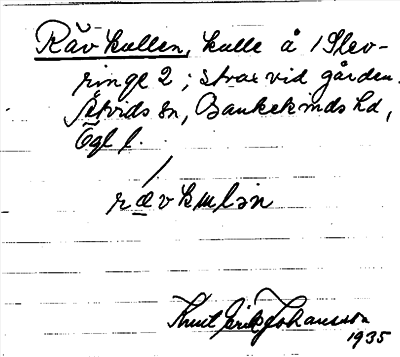 Rävkullen, kulle å 1 Slev-
ringe 2; strax vid gården.
Åtvids sn, Bankekinds hd,
Ögl f.
rævkulən
Knut Erik Johansson
1935